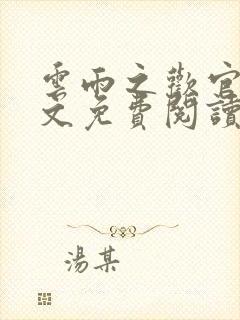 雲雨之歡官
文免費閱讀
湯某